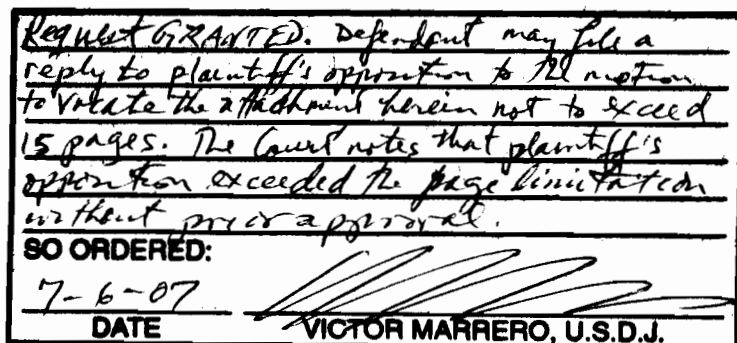 Request GRANTED. Defendant may file a
reply to plaintiff's opposition to the motion
to vacate the attachment herein not to exceed
15 pages. The Court notes that plaintiff's
opposition exceeded the page limitation
without prior approval.
SO ORDERED:
7-6-07
DATE VICTOR MARRERO, U.S.D.J.